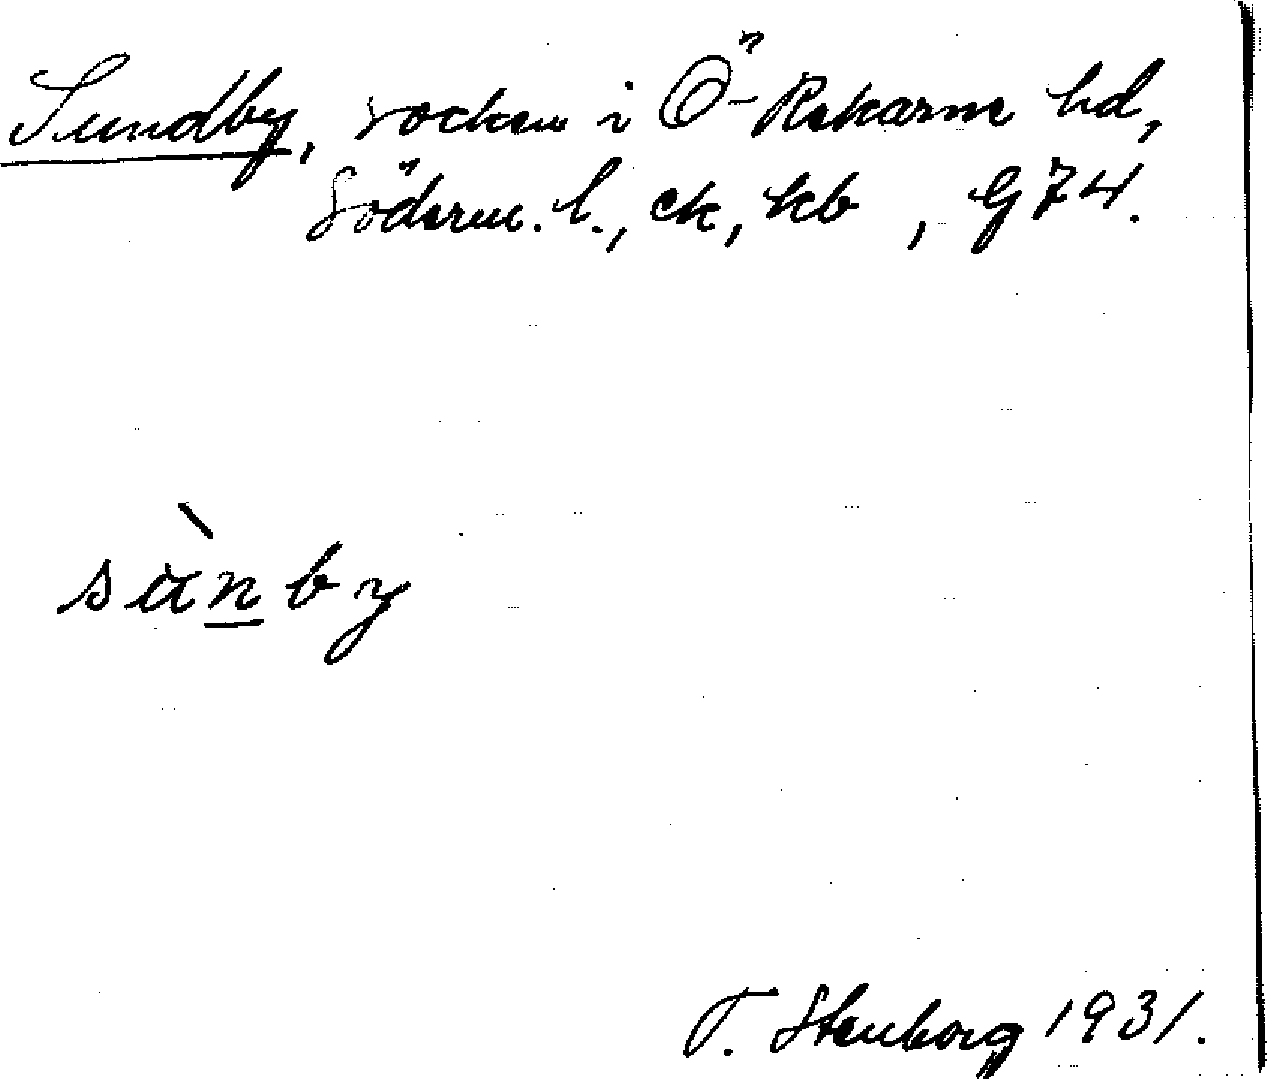 Sundby, socken i Ö-Rekarne hd,
Söderm. l., ek, kb, G 74.
sùnby
T. Stenborg 1931.